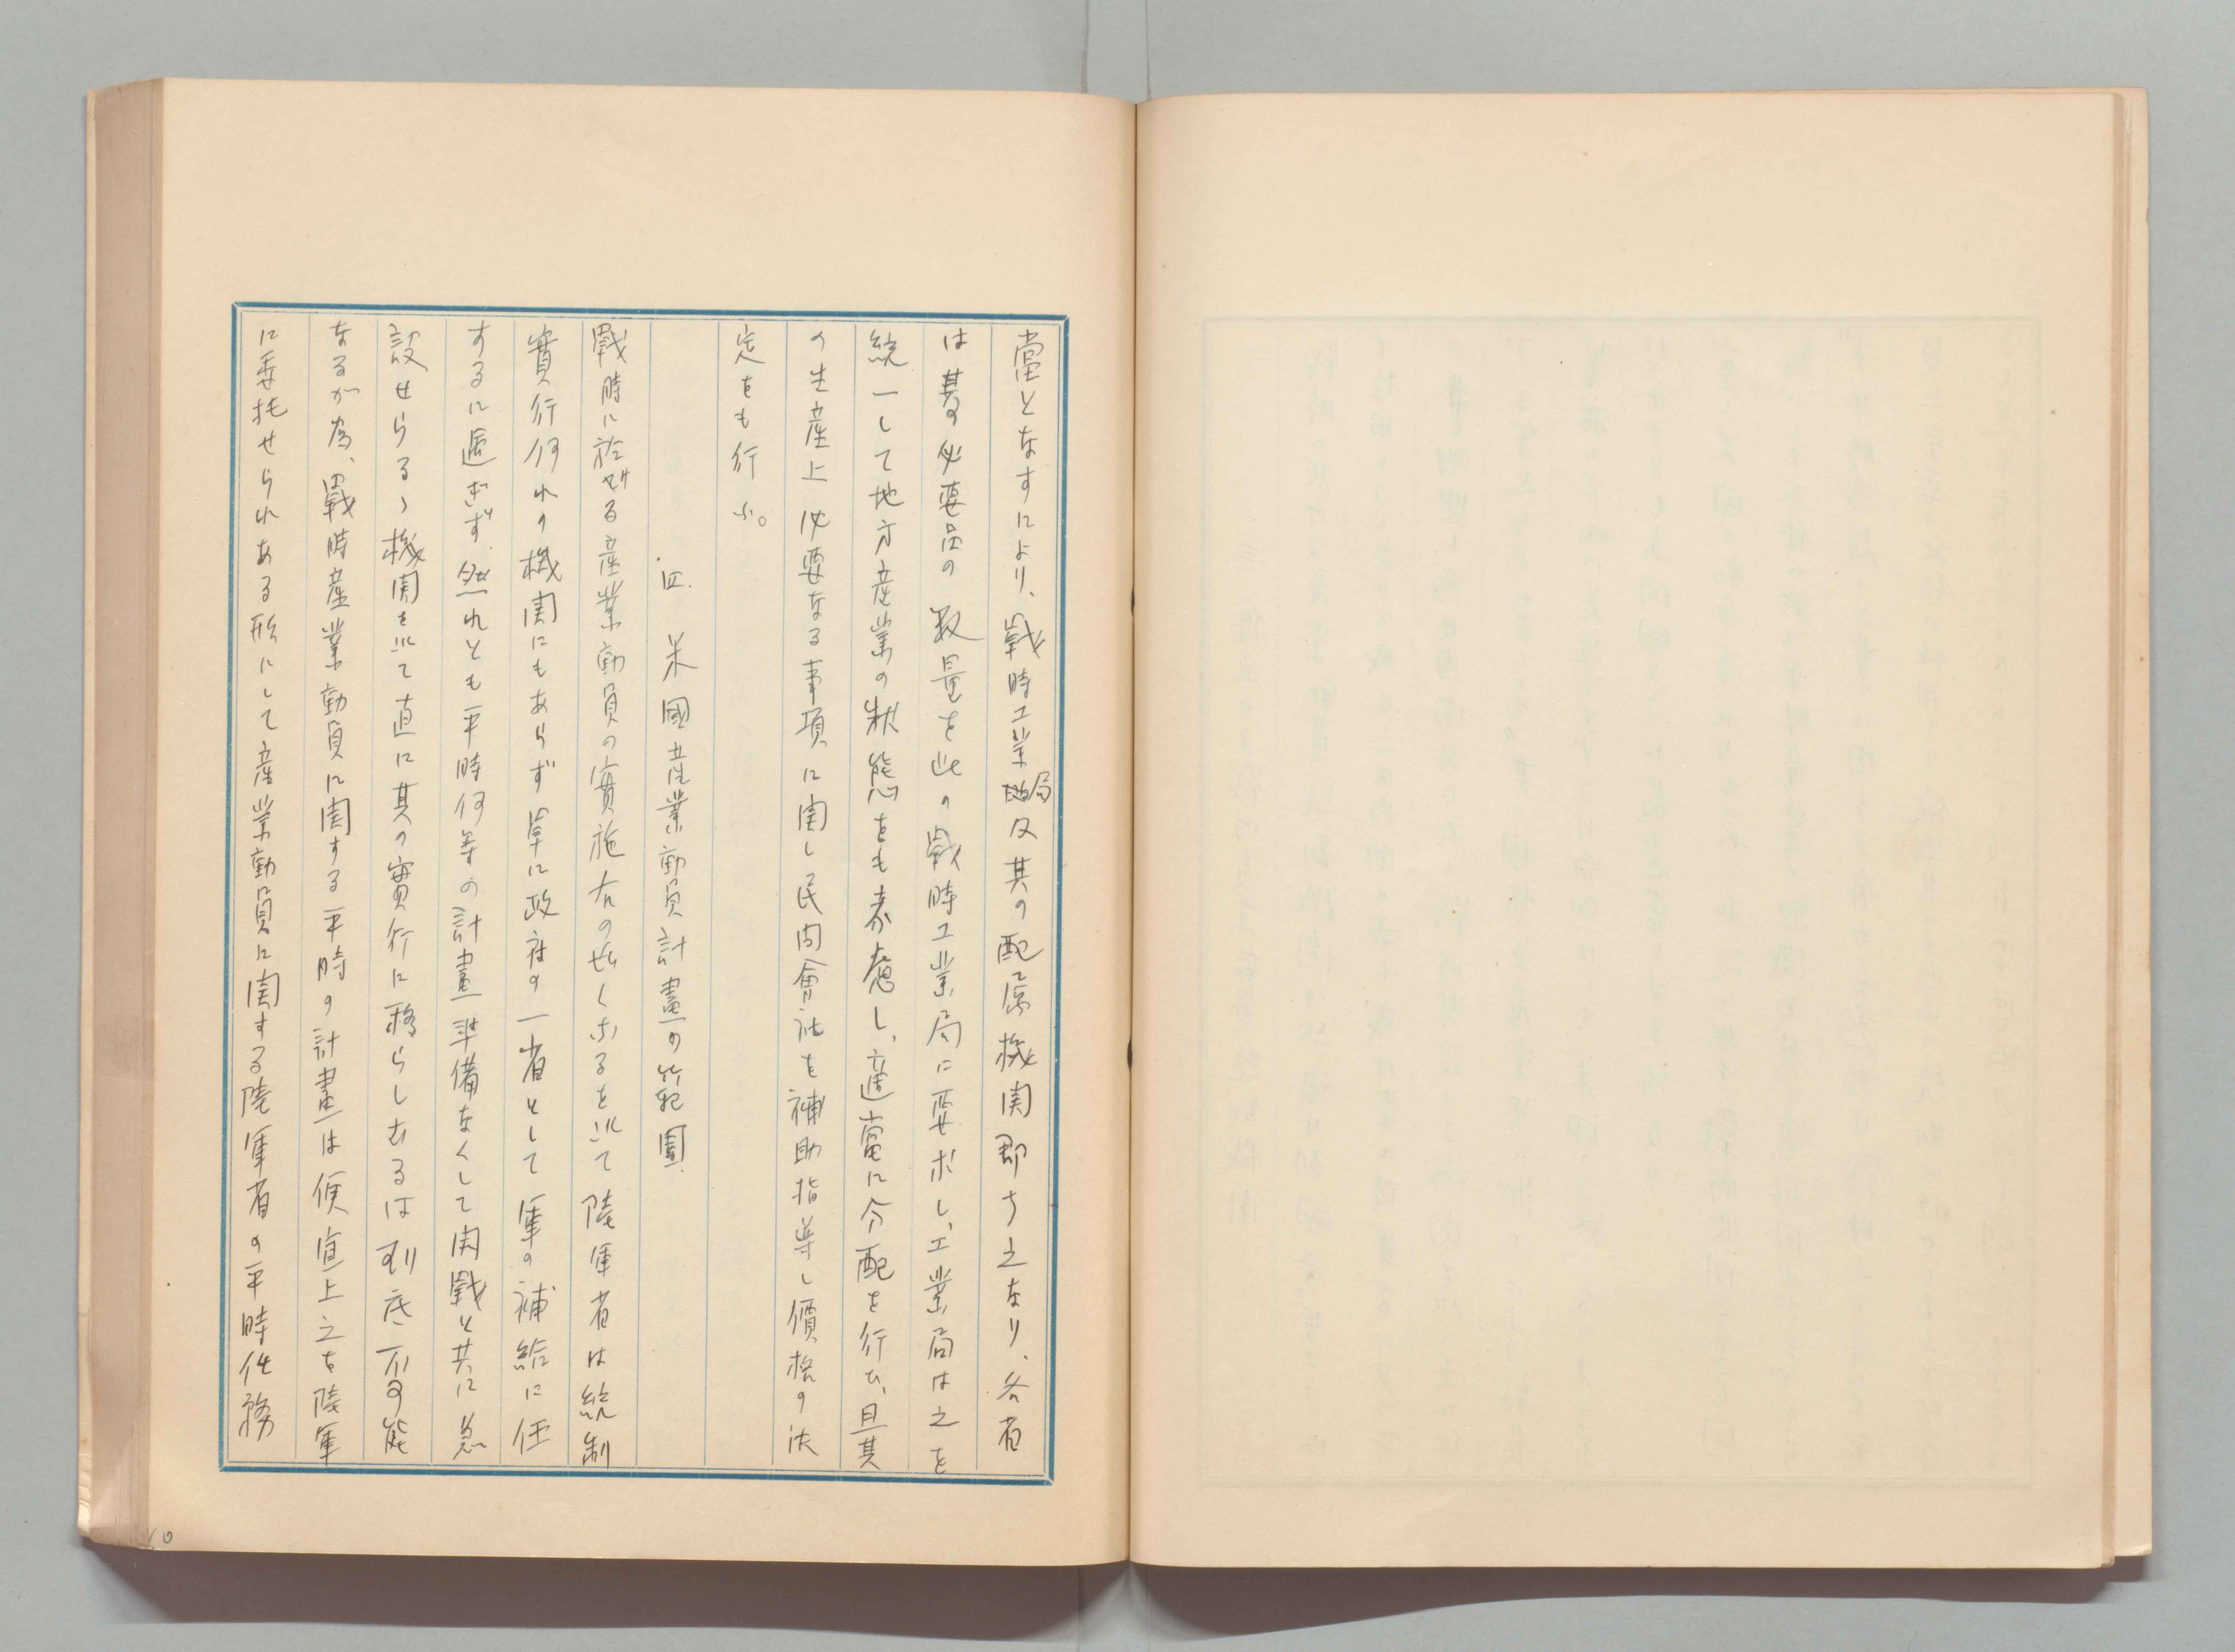 當となすにより、戰時工業局及其の配屬機関即ち之なり、各省
は其の必要品の数量を此の戰時工業局に要求し、工業局は之を
統一して地方産業の状態をも考慮し、適當に分配を行ひ、且其
の生産上必要なる事項に関し民間會社を補助指導し價格の決
定をも行ふ。
四、米國産業動員計畫の範圍
戰時に於ける産業動員の實施右の如くなるを以て陸軍省は統制
實行何れの機関にもあらず単に政府の一省として軍の補給に任
するに過ぎず、然れとも平時何等の計畫準備なくして開戰と共に急
設せらるゝ機関を以て直に其の實行に移らしむるは到底不可能
なるが為、戰時産業動員に関する平時の計畫は便宜上之を陸軍
に委托せられある形にして産業動員に関する陸軍省の平時任務
10